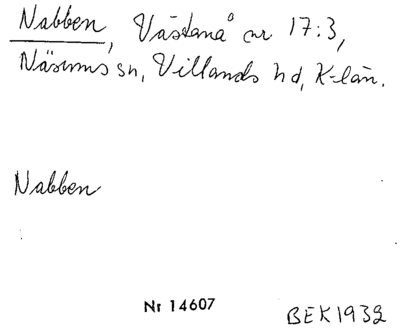 Nabben, Västanå nr 17:3,
Näsums sn, Villands hd, K-län.
Nabben
Nr 14607
BEK1932